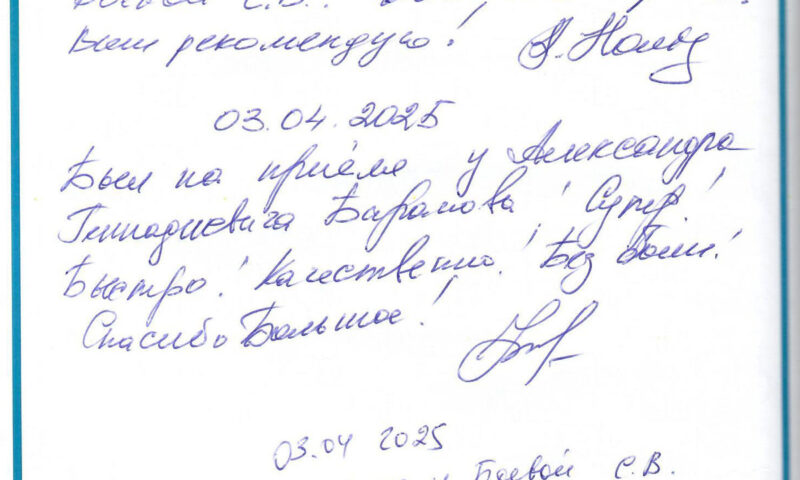 Боевой С.В.
Вам рекомендую!
03.04.2025
Был на приёме у Александра
Геннадиевича Баранова! Супер!
Быстро! Качественно! Без боли!
Спасибо Большое!
03.04 2025
Боевой С.В.